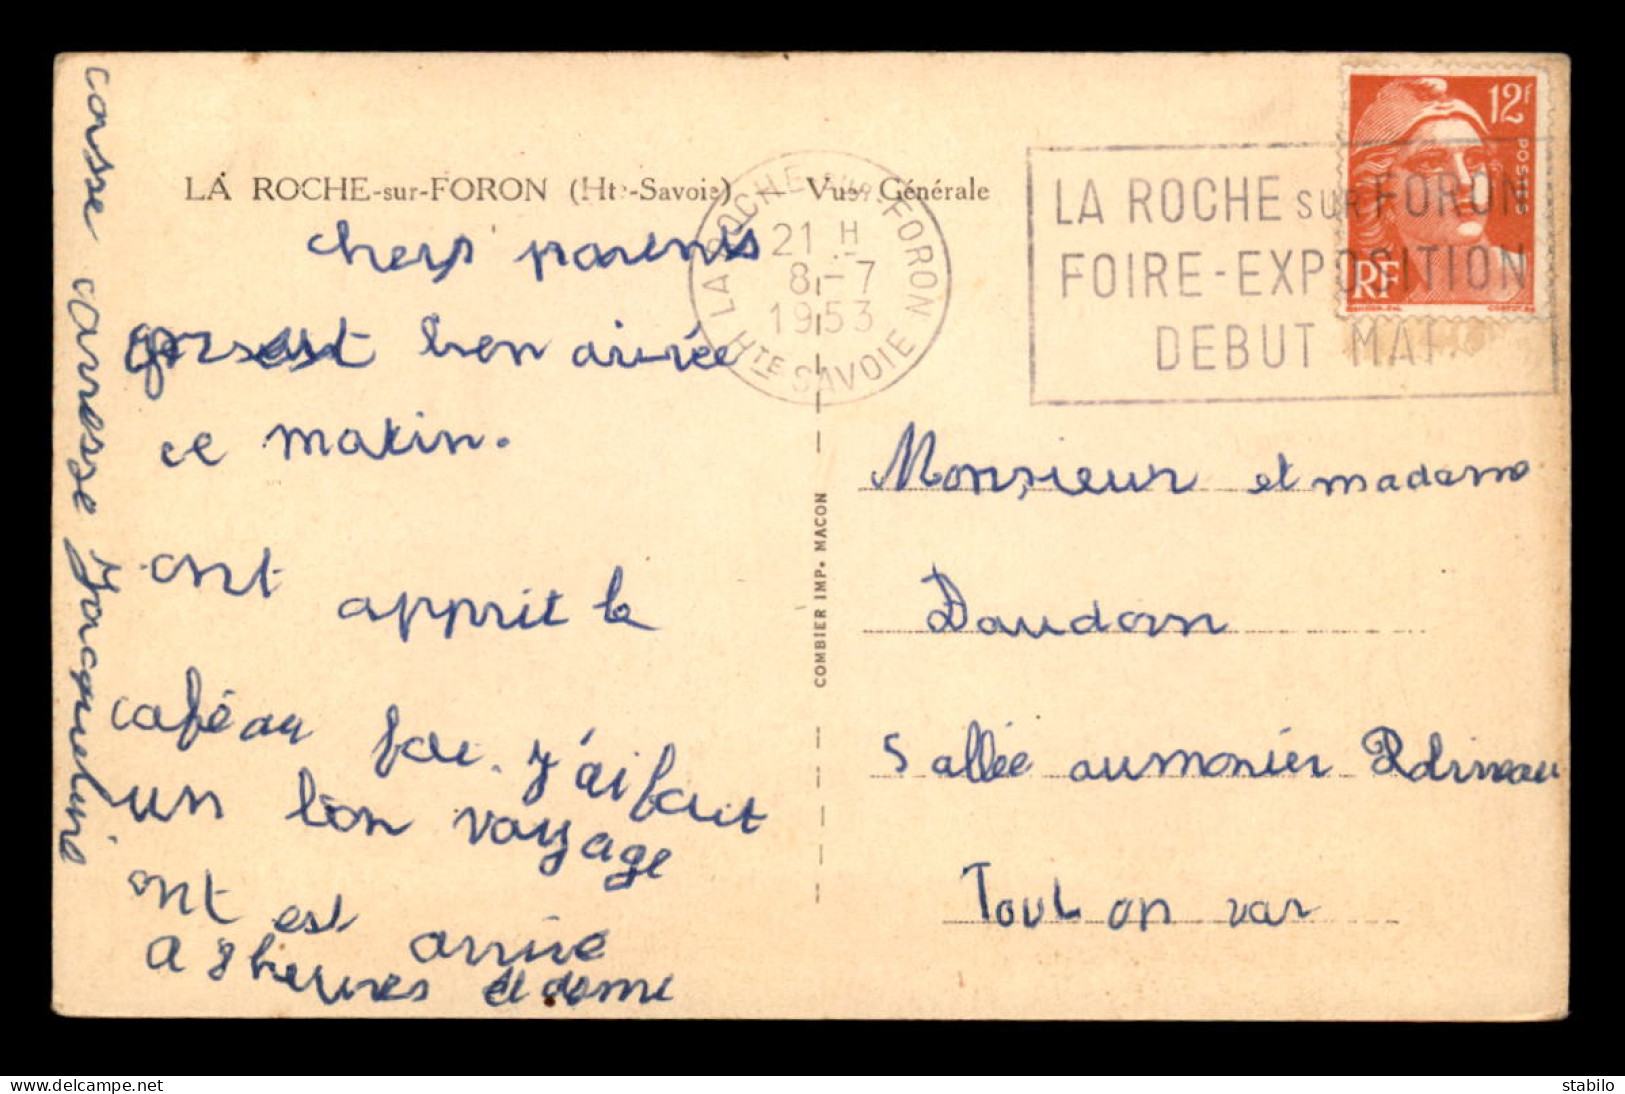 LA ROCHE-sur-FORON (Hte-Savoie) — Vue Générale
chers parents
bien arivée
ce matin.
ont apprit le
café au j'ai fait
un bon voyage
ont est arrivé
A 8 heures et deme
caresse Jacqueline
LA ROCHE sur FORON
21 H
8 - 7
1953
HTE SAVOIE
LA ROCHE sur FORON
FOIRE-EXPOSITION
DEBUT MAI
12F
POSTES
RF
COMBIER IMP. MACON
Monsieur et madame
Daudon
5 allée aumonier
Toulon var
delcampe.net
stabilo